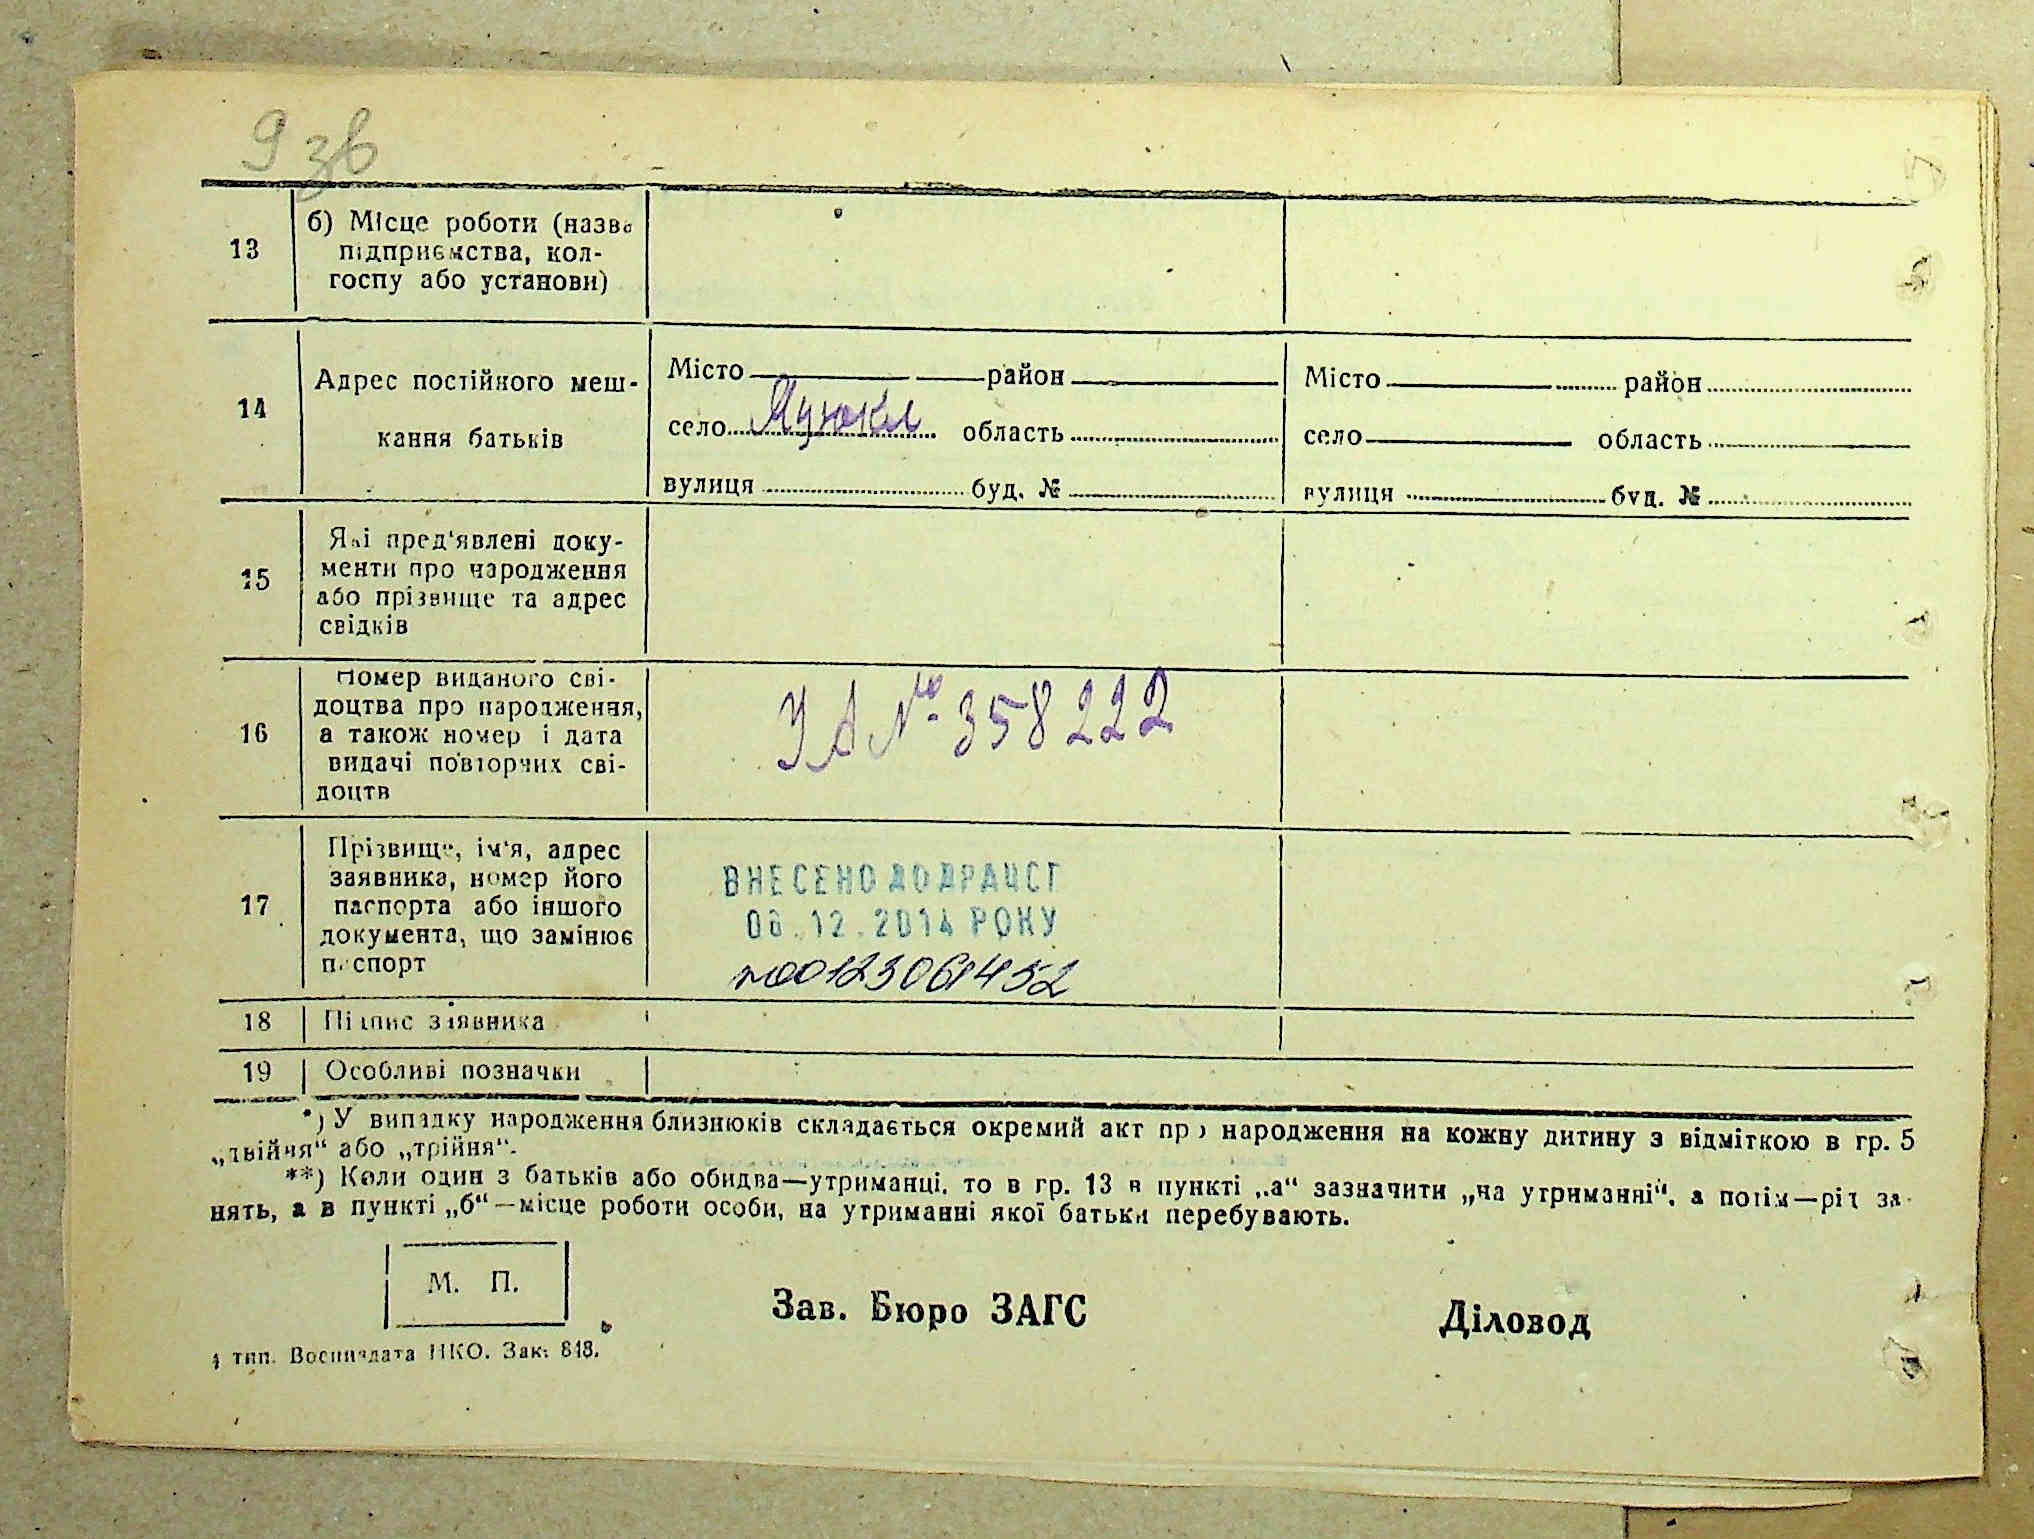 9 зв
13
б) Місце роботи (назва
підприємства, кол-
госпу або установи)
14
Адрес постійного меш-
кання батьків
Місто район
село Яцюки область
вулиця буд. №
Місто район
село область
вулиця буд. №
15
Які пред'явлені доку-
менти про народження
або прізвище та адрес
свідків
16
Номер виданого сві-
доцтва про народження,
а також номер і дата
видачі повторних сві-
доцтв
УА № 358222
17
Прізвище, ім'я, адрес
заявника, номер його
паспорта або іншого
документа, що замінює
паспорт
ВНЕСЕНО ДО ДРАЦСГ
06.12.2014 РОКУ
№00123061452
18 Підпис заявника
19 Особливі позначки
*) У випадку народження близнюків складається окремий акт про народження на кожну дитину з відміткою в гр. 5
„двійня“ або „трійня“.
**) Коли один з батьків або обидва—утриманці, то в гр. 13 в пункті „а“ зазначити „на утриманні“, а потім—рід за-
нять, а в пункті „б“—місце роботи особи, на утриманні якої батьки перебувають.
М. П.
Зав. Бюро ЗАГС
Діловод
тип. Воениздата НКО. Зак. 848.